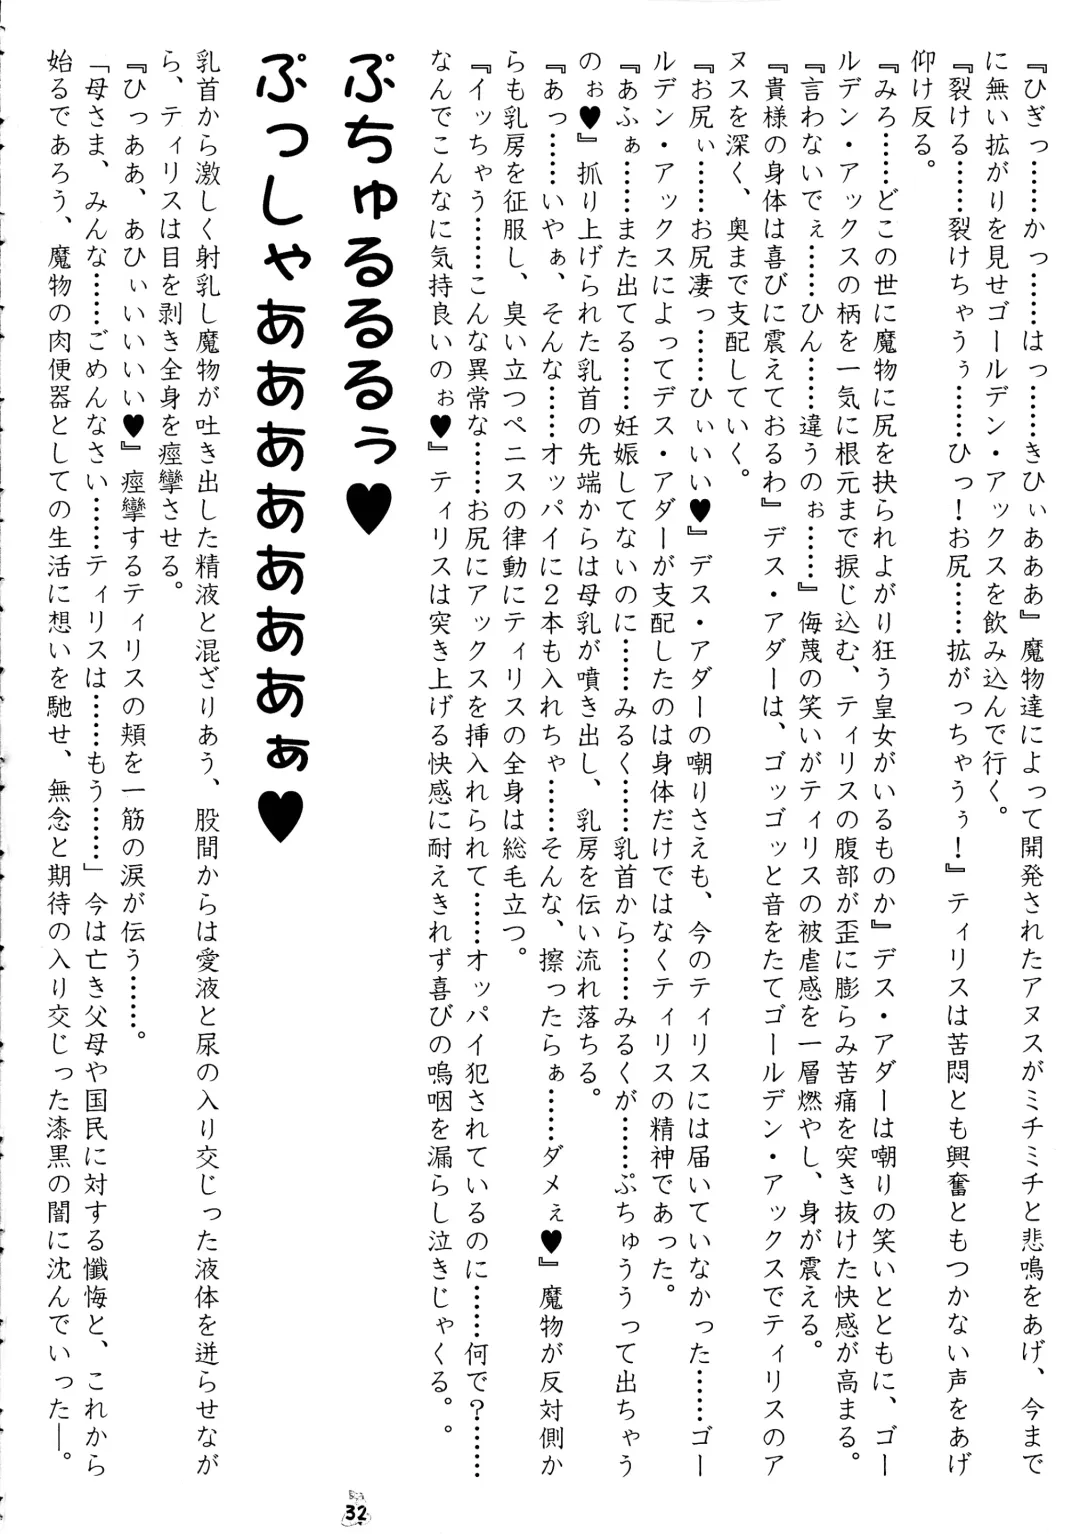 『ひぎっ……かっ……はっ……きひぃあああ』魔物達によって開発されたアヌスがミチミチと悲鳴をあげ、今まで
に無い拡がりを見せゴールデン・アックスを飲み込んで行く。
『裂ける……裂けちゃうぅ……ひっ！お尻……拡がっちゃうぅ！』ティリスは苦悶とも興奮ともつかない声をあげ
仰け反る。
『みろ……どこの世に魔物に尻を抉られよがり狂う皇女がいるものか』デス・アダーは嘲りの笑いとともに、ゴー
ルデン・アックスの柄を一気に根元まで捩じ込む、ティリスの腹部が歪に膨らみ苦痛を突き抜けた快感が高まる。
『言わないでぇ……ひん……違うのぉ……』侮蔑の笑いがティリスの被虐感を一層燃やし、身が震える。
『貴様の身体は喜びに震えておるわ』デス・アダーは、ゴッゴッと音をたてゴールデン・アックスでティリスのア
ヌスを深く、奥まで支配していく。
『お尻ぃ……お尻凄っ……ひぃいい♥』デス・アダーの嘲りさえも、今のティリスには届いていなかった……ゴー
ルデン・アックスによってデス・アダーが支配したのは身体だけではなくティリスの精神であった。
『あふぁ……また出てる……妊娠してないのに……みるく……乳首から……みるくが……ぷちゅううって出ちゃう
のぉ♥』抓り上げられた乳首の先端からは母乳が噴き出し、乳房を伝い流れ落ちる。
『あっ……いやぁ、そんな……オッパイに２本も入れちゃ……そんな、擦ったらぁ……ダメぇ♥』魔物が反対側か
らも乳房を征服し、臭い立つペニスの律動にティリスの全身は総毛立つ。
『イッちゃう……こんな異常な……お尻にアックスを挿入れられて……オッパイ犯されているのに……何で？……
なんでこんなに気持良いのぉ♥』ティリスは突き上げる快感に耐えきれず喜びの嗚咽を漏らし泣きじゃくる。。
ぷちゅるるるぅ♥
ぷっしゃああああああああぁ♥
乳首から激しく射乳し魔物が吐き出した精液と混ざりあう、股間からは愛液と尿の入り交じった液体を迸らせなが
ら、ティリスは目を剥き全身を痙攣させる。
『ひっああ、あひぃいいいい♥』痙攣するティリスの頬を一筋の涙が伝う……。
「母さま、みんな……ごめんなさい……ティリスは……もう……」今は亡き父母や国民に対する懺悔と、これから
始るであろう、魔物の肉便器としての生活に想いを馳せ、無念と期待の入り交じった漆黒の闇に沈んでいった―。
32